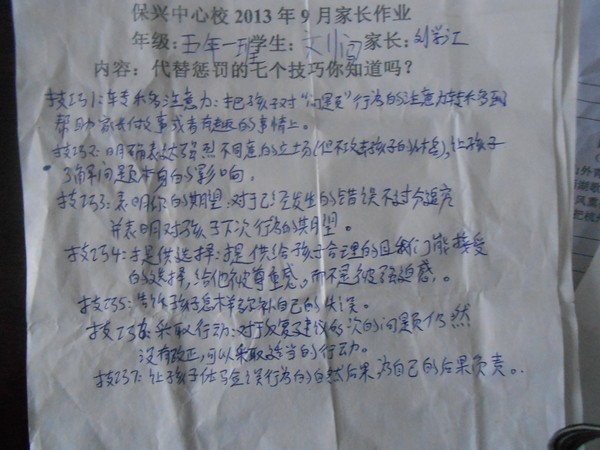 保兴中心校 2013 年 9 月家长作业
年级:五年一班学生: 家长:
内容: 代替惩罚的七个技巧你知道吗?
技巧1:转移注意力:把孩子对“问题”行为的注意力转移到
帮助家长做事或者有趣的事情上。
技巧2:明确表达强烈不同意的立场(但不攻击孩子的人格),让孩子
了解问题本身的影响。
技巧3:表明你的期望:对于已经发生的错误不过分追究
并表明对孩子下次行为的期望。
技巧4:提供选择:提供给孩子合理的且我们能接受
的选择,给他被尊重感。而不是被强迫感。
技巧5:告诉孩子怎样弥补自己的失误。
技巧6:采取行动:对于反复建议的次的问题仍然
没有改正,可以采取适当的行动。
技巧7:让孩子体验错误行为的自然后果,为自己的后果负责。